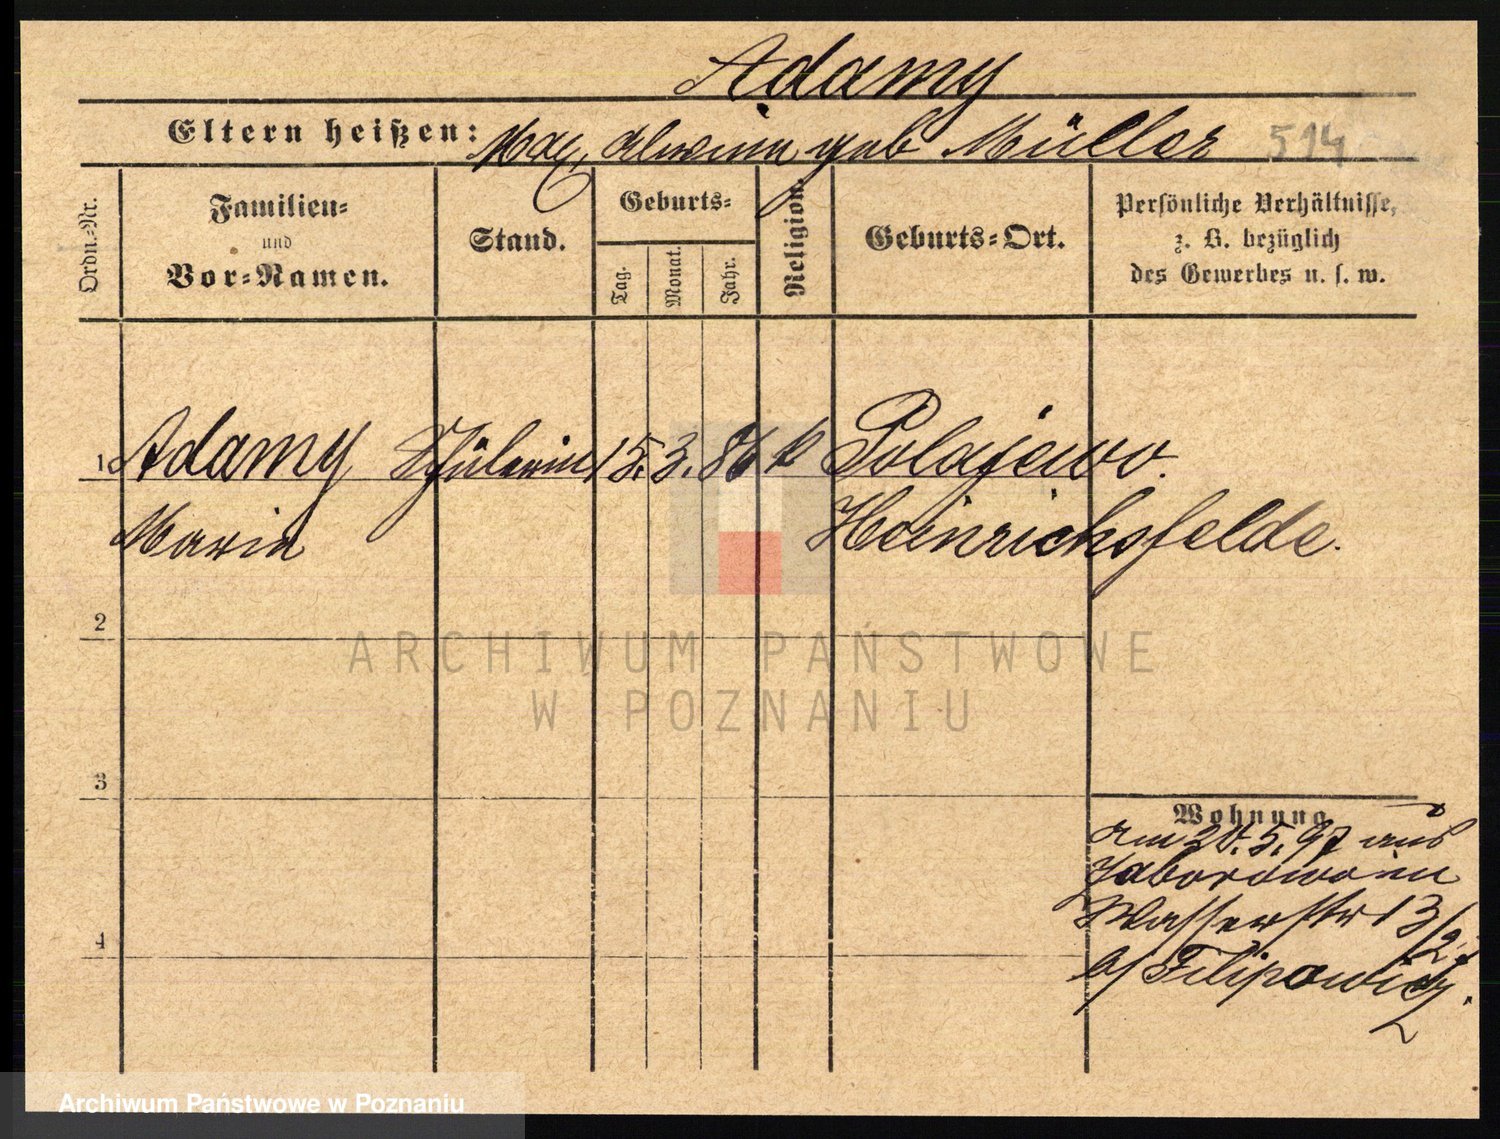 Adamy
Eltern heißen: Max, Alwine geb Müller 514
Ordn.-Nr.
Familien-
und
Vor-Namen.
Stand.
Geburts-
Tag.
Monat.
Jahr.
Religion.
Geburts-Ort.
Persönliche Verhältnisse,
z. B. bezüglich
des Gewerbes u. s. w.
1 Adamy Schülerin 15. 3. 86 k Polajewo.
Maria Heinrichsfelde.
2
ARCHIWUM PAŃSTWOWE
W POZNANIU
3
Wohnung
am 20.5.97 aus
Zaborowo in
Wasserstr 13/2.
b/ Filipowicz.
4
Archiwum Państwowe w Poznaniu